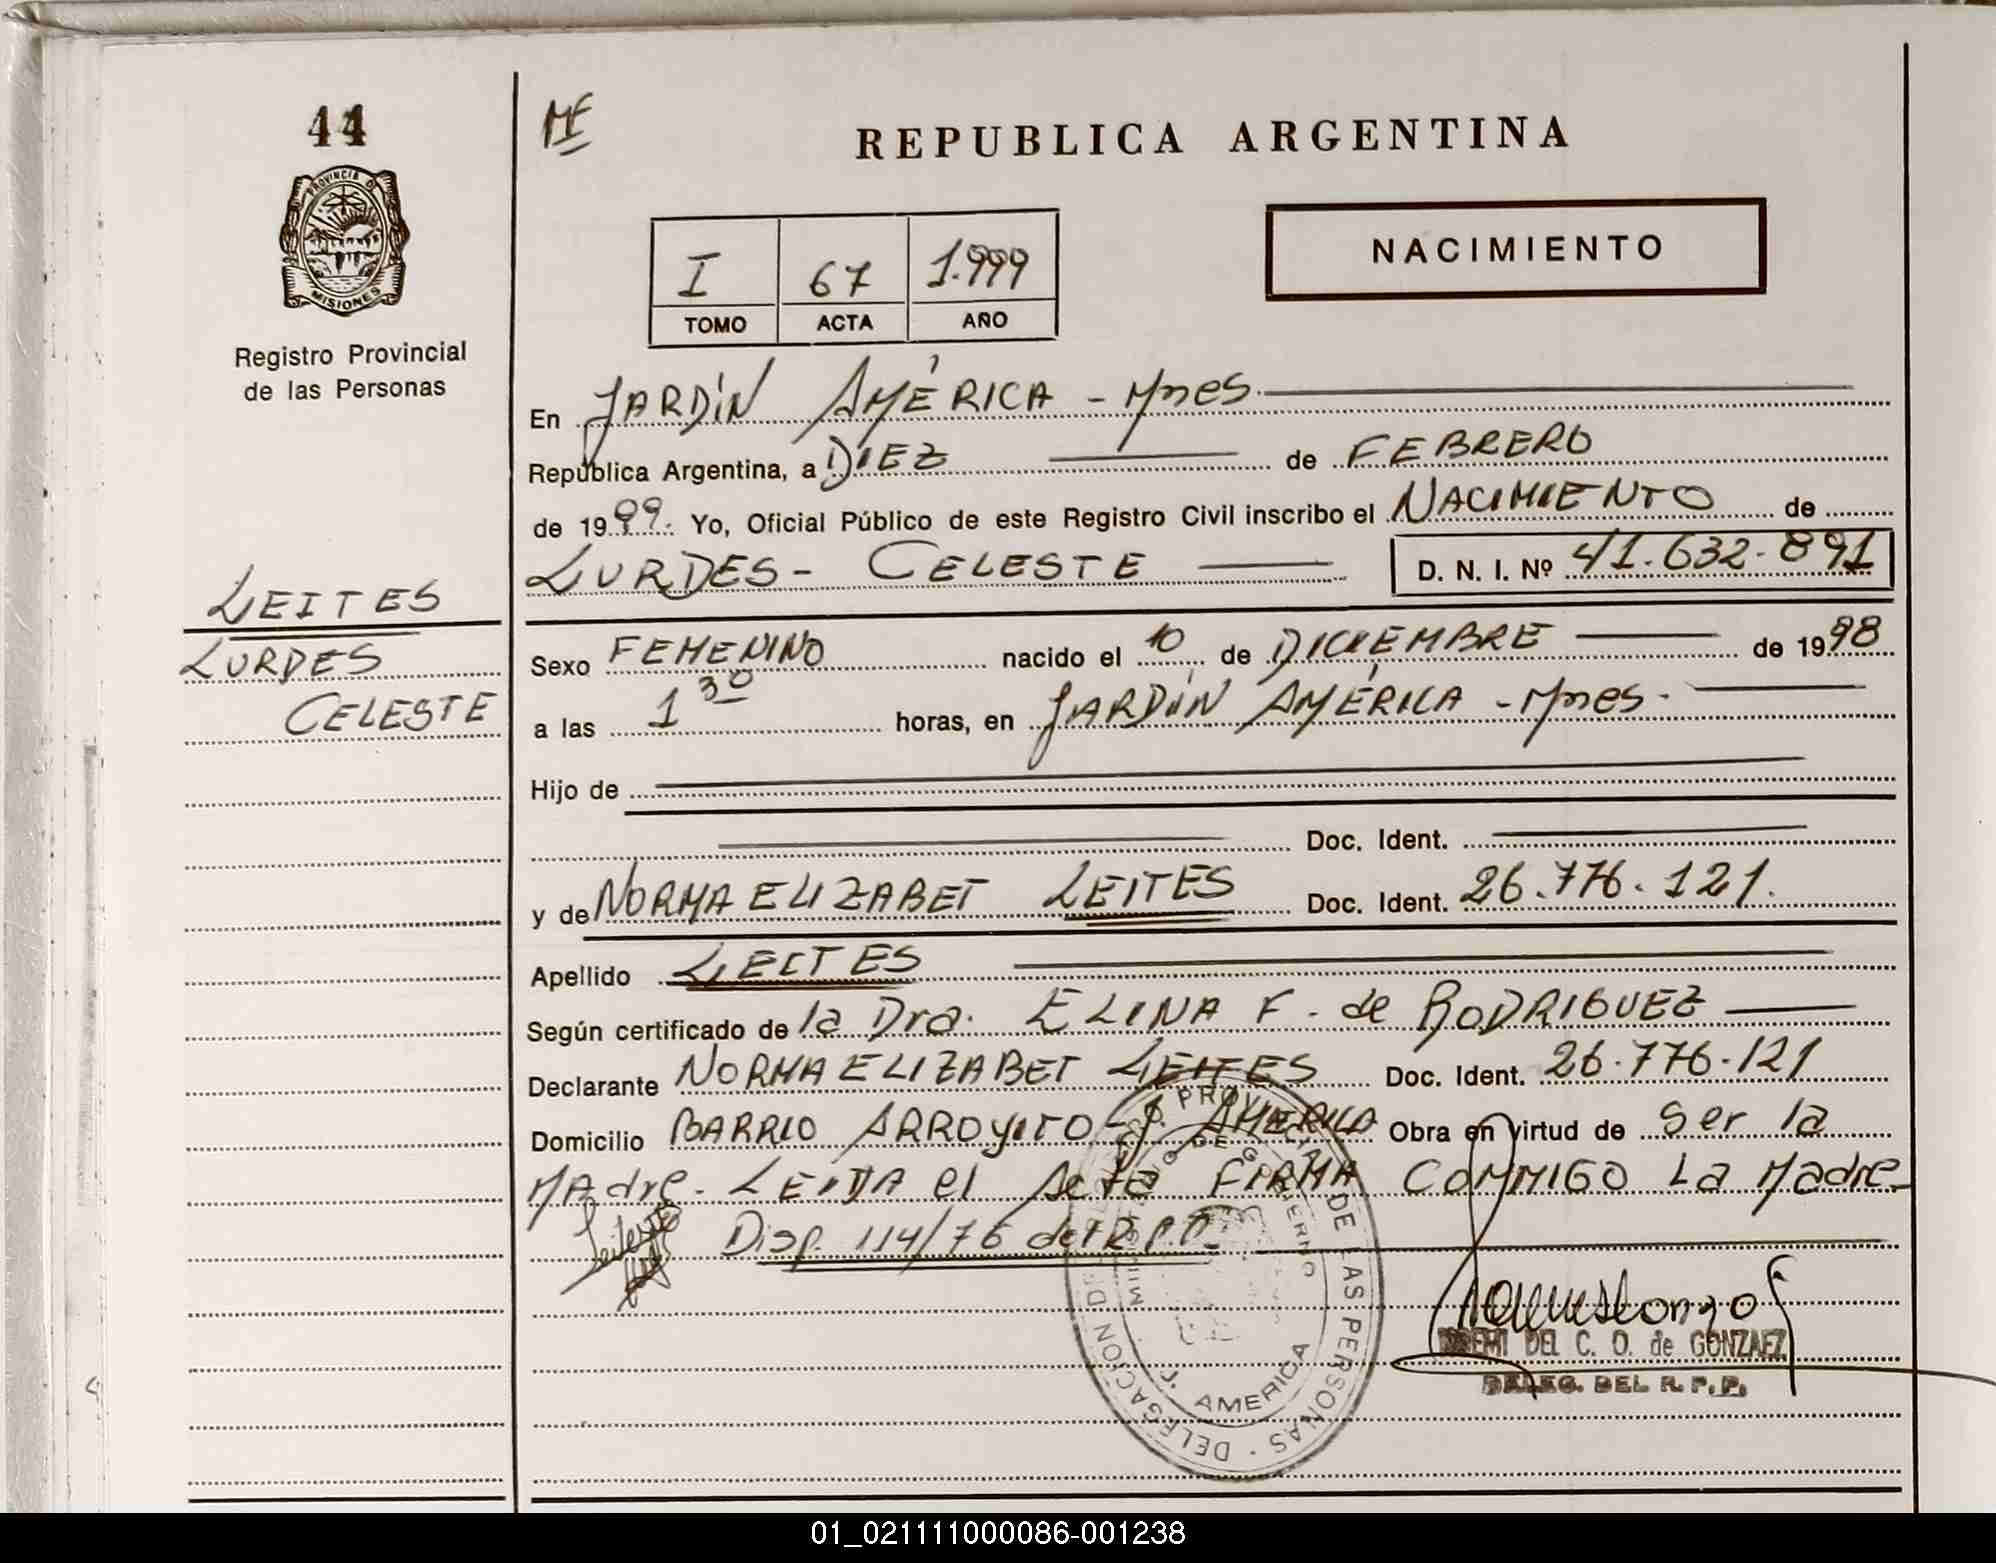 44
PROVINCIA D
MISIONES
Registro Provincial
de las Personas
LEITES
LURDES
CELESTE
MF
REPUBLICA ARGENTINA
I 67 1.999
TOMO ACTA AÑO
NACIMIENTO
En JARDÍN AMÉRICA - Mnes.
República Argentina, a DIEZ de FEBRERO
de 1999. Yo, Oficial Público de este Registro Civil inscribo el NACIMIENTO de
LURDES - CELESTE D. N. I. Nº 41.632.891
Sexo FEMENINO nacido el 10 de DICIEMBRE de 1998
a las 1 30 horas, en JARDÍN AMÉRICA - Mnes.
Hijo de
Doc. Ident.
y de NORMA ELIZABET LEITES Doc. Ident. 26.776.121.
Apellido LEITES
Según certificado de la Dra. ELINA F. de RODRIGUEZ
Declarante NORMA ELIZABET LEITES Doc. Ident. 26.776.121
Domicilio BARRIO ARROYITO - J. AMERICA Obra en virtud de Ser la
MAdre - LEIDA el Acta FIRMA CONMIGO LA Madre -
Disp. 114/76 del R.P.P.
DEL C. O. de GONZAEZ
DELEG. DEL R. P. P.
DE LAS PERSONAS · DELEGACION DE
J. AMERICA
01_021111000086-001238